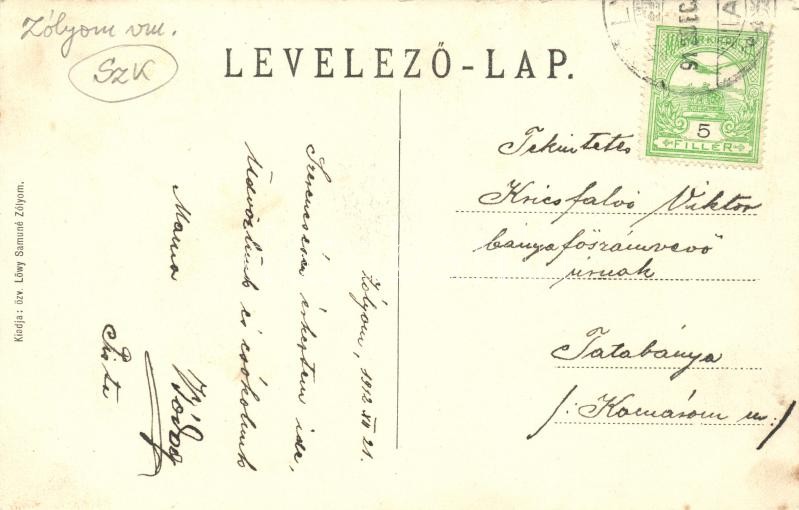 Zólyom vm.
SZK
LEVELEZŐ-LAP.
MAGYAR KIR. POSTA
5
FILLÉR
Tekintetes
Kricsfalvi Viktor
bányafőszámvevő
úrnak
Tatabánya
/: Komárom m /
Zólyom, 1912 XII 21.
Szerencsésen érkeztem ide,
Üdvözlünk és csókolunk
Mama
Pista
Kiadja: özv. Löwy Samuné Zólyom.